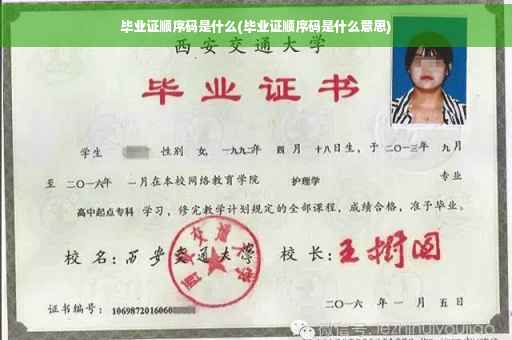 毕业证顺序码是什么(毕业证顺序码是什么意思)
西安交通大学
毕业证书
学生 性别 女, 一九九二年 四月 十八日生, 于二〇一三年 九月
至 二〇一六年 一月在本校网络教育学院 护理学 专业
高中起点专科 学习, 修完教学计划规定的全部课程, 成绩合格, 准予毕业。
校 名: 西安交通大学 校 长: 王树国
西安交通大学
证书编号: 1069872016060
二〇一六 年 一 月 五 日
微信号: jezhihuiyoujiao